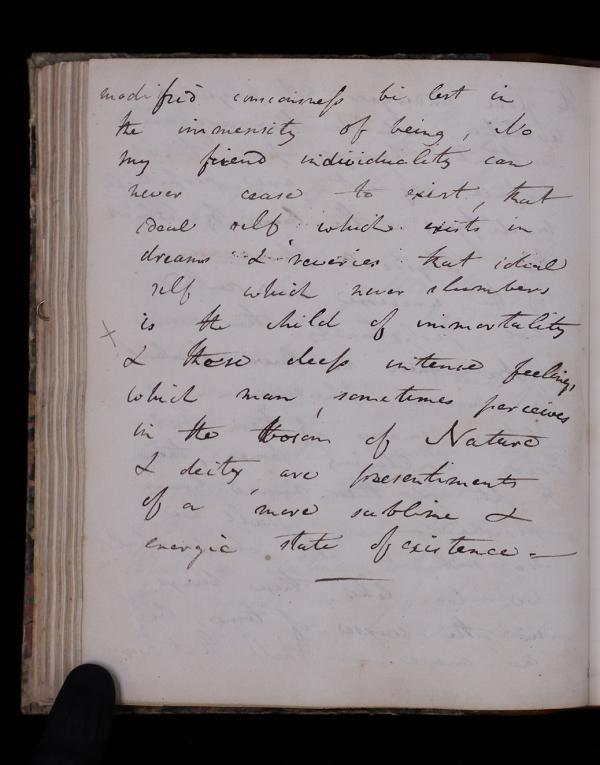 modified consciousness be lost in
the immensity of being, No
my friend individuality can
never cease to exist, that
ideal self which exists in
dreams & reveries that ideal
self which never slumbers
is the child of immortality
× & those deep intense feelings,
which man sometimes perceives
in the bosom of Nature
& deity are presentiments
of a more sublime &
energic state of existence. —